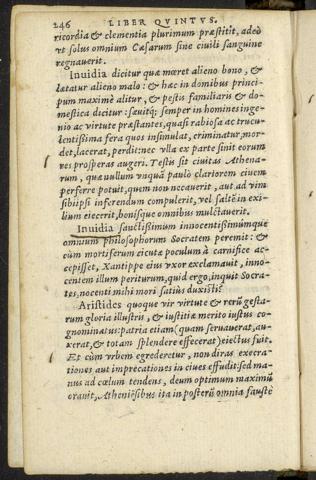 246 LIBER QVINTVS.
ricordia & clementia plurimum præstitit, adeò
vt solus omnium Cæsarum sine ciuili sanguine
regnauerit.
Inuidia dicitur quæ mœret alieno bono, &
lætatur alieno malo: & hæc in domibus princi-
pum maximè alitur, & pestis familiaris & do-
mestica dicitur: sæuitq; semper in homines ingenio
ac virtute præstantes, quasi rabiosa ac trucu-
lentissima fera quos insimulat, criminatur, mor-
det, lacerat, perdit: nec vlla ex parte sinit eorum
res prosperas augeri. Testis sit ciuitas Athena-
rum, quæ nullum vnquā paulò clariorem ciuem
perferre potuit, quem non necauerit, aut ad vim
sibiipsi inferendum compulerit, vel saltē in exi-
lium eiecerit, bonisque omnibus mulctauerit.
Inuidia sanctissimum innocentissimúmque
omnium philosophorum Socratem peremit: &
cùm mortiferum cicutæ poculum à carnifice ac-
cepisset, Xantippe eius vxor exclamauit, inno-
centem illum periturum, quid ergo, inquit Socra-
tes, nocenti mihi mori satiùs duxisti?
Aristides quoque vir virtute & rerū gesta-
rum gloria illustris, & iustitiæ merito iustus co-
gnominatus: patria etiam (quam seruauerat, au-
xerat, & totam splendere effecerat) eiectus fuit.
Et cùm vrbem egrederetur, non diras execra-
tiones aut imprecationes in ciues effudit: sed ma-
nus ad cœlum tendens, deum optimum maximū
orauit, Atheniēsibus ita in posterū omnia faustè